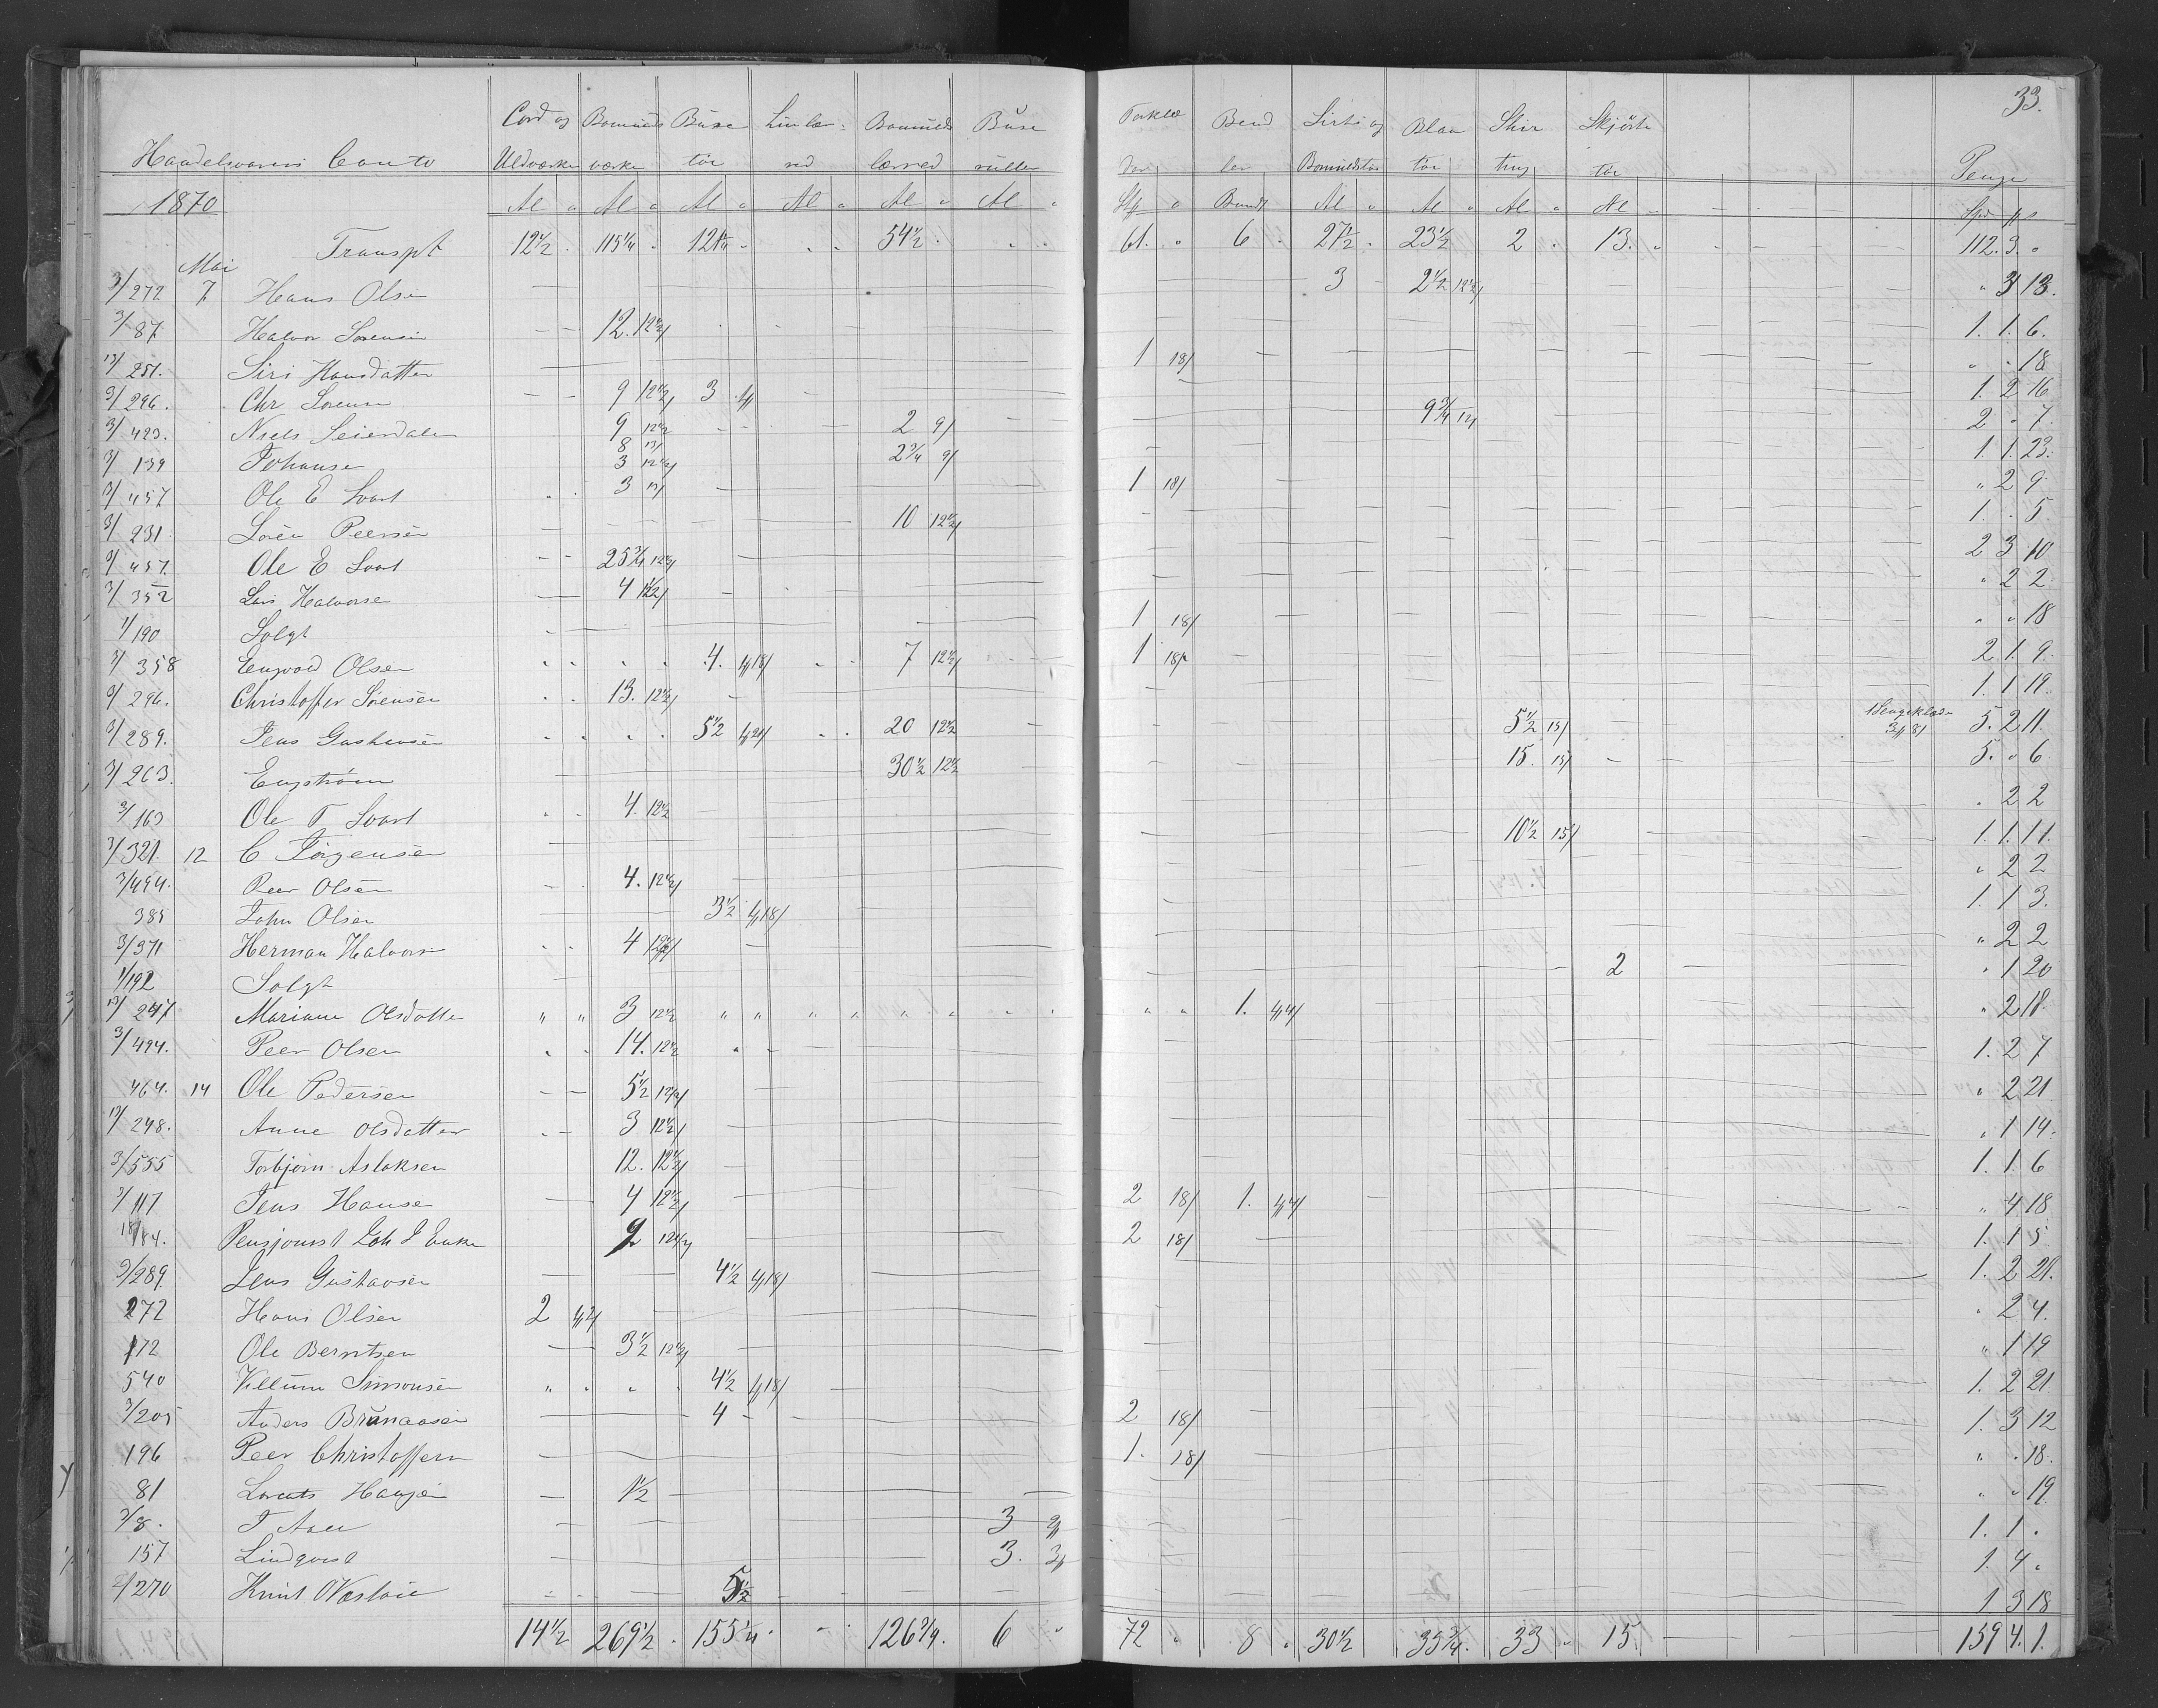 33.
Handelsvarers Conto | Cord og Uldværke | Bomulds værke | Buxe töi | Linlær red | Bomulds lærred | Buxe rullen | Torklæ der | Bend ler | Sirts og Bomuldstöi | Blaa töi | Shir ting | Skjörte töi | Penge
1870 | Al | Al | Al | Al | Al | Al | Stk | Bundt | Al | Al | Al | Al | Spd ß
Transpt | 12 1/2 | 115 1/4 | 121 1/4 | 54 1/2 | 61. | 6 | 27 1/2 | 23 1/2 | 2 | 13. | 112. 3. "
Mai
3/272 7 Hans Olsen | 3 | 2 1/2 12 1/2/ | " 3 13.
3/87 Halvor Sorensen | 12. 12 1/2/ | 1. 1. 6.
13/251. Siri Hansdatter | 1 18/ | " " 18
3/296. Chr Sorensen | 9 12 1/2/ | 3 | 1. 2 16
3/423. Niels Seierdalen | 9 12 1/2 | 2 9/ | 9 3/4 12/ | 2 " 7.
3/139 Johansen | 8 13/ 3 12 1/2/ | 2 3/4 9/ | 1 1. 23.
13/457 Ole E Svart | 3 13/ | 1 18/ | " 2 9.
3/231 Sören Peersen | 10 12 1/2/ | 1. " 5.
3/457. Ole E Svart | 25 3/4 12 1/2/ | 2 3 10
3/352 Lars Halvorse | 4 12 1/2/ | " 2 2
1/190 Solgt | 1 18/ | " " 18
3/358 Engvold Olsen | 4. 18/ | 7 12 1/2/ | 1 18/ | 2 1. 9.
3/296. Christoffer Sörensen | 13. 12 1/2/ | 1. 1 19.
3/289. Jens Gustavsen | 5 1/2 21/ | 20 12 1/2 | 5 1/2 15/ | 1 Sengeklæde | 5. 2 11.
3/263. Engström | 30 1/2 12 1/2 | 15. 15/ | 5. " 6
3/163 Ole T Svart | 4. 12 1/2 | " 2 2
3/321. 12 C Jörgensen | 10 1/2 15/ | 1. 1. 11.
3/494. Peer Olsen | 4. 12 1/2/ | " 2 2
385 John Olsen | 3 1/2 18/ | 1. 1 3.
3/371 Herman Halvors | 4 12 1/2/ | " 2 2
1/192 Solgt | 2 | " 1 20
13/247 Mariane Olsdatter | 3 12 1/2 | 1. | " 2 18.
3/494. Peer Olsen | 14. 12 1/2 | 1. 2 7
464. 14 Ole Pedersen | 5 1/2 12 1/2/ | " 2 21
13/248. Anne Olsdatter | 3 12 1/2/ | " 1 14.
3/555 Torbjørn Aslaksen | 12. 12 1/2/ | 1. 1. 6
3/117 Jens Hansen | 4 12 1/2/ | 2 18/ | 1. | " 4 18
18/184. Pensjonist Joh J Enke | 9 12 1/2/ | 2 18/ | 1. 1 5
3/289 Jens Gustavsen | 4 1/2 18/ | 1. 2 21.
272 Hans Olsen | 2 | " 2 4.
172 Ole Berntsen | 3 1/2 12 1/2/ | " 1 19
540 Villum Simonsen | 4 1/2 18/ | 1. 2 21
3/205 Anders Brunaasen | 4 | 2 18/ | 1. 3 12
196 Peer Christoffersn | 1. 18/ | " " 18.
81 Lorents Haugen | 1 1/2 | " " 19
3/8. J Aall | 3 | 1. 1 "
157 Lindqvist | 3. | 1. 4 "
2/270 Knut O Næstöie | 5 1/2 | 1 3 18
14 1/2 | 269 1/2 | 155 1/4 | 126 3/4. | 6 | 72 | 8 | 30 1/2 | 35 3/4. | 33 | 15. | 159 4. 1.